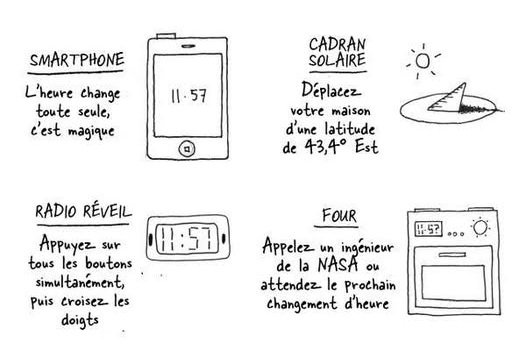 SMARTPHONE
L'heure change
toute seule,
c'est magique
11·57
CADRAN
SOLAIRE
Déplacez
votre maison
d'une latitude
de 43,4° Est
RADIO RÉVEIL
Appuyez sur
tous les boutons
simultanément,
puis croisez les
doigts
11:57
FOUR
Appelez un ingénieur
de la NASA ou
attendez le prochain
changement d'heure
11:57